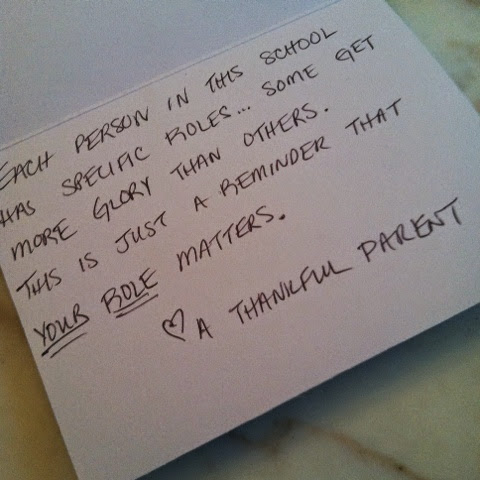 EACH PERSON IN THIS SCHOOL
HAS SPECIFIC ROLES... SOME GET
MORE GLORY THAN OTHERS.
THIS IS JUST A REMINDER THAT
YOUR ROLE MATTERS.
♡ A THANKFUL PARENT